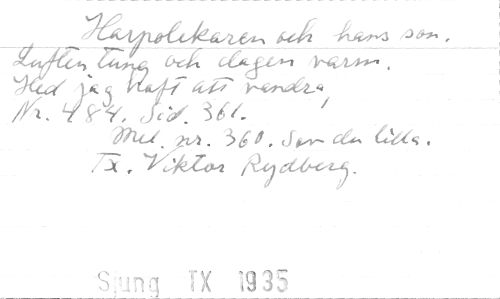 Harpolekaren och hans son.
Luften tung och dagen varm.
Hed jag haft att vandra,
Nr. 484. Sid. 361.
Mel. nr. 360. Sov du lilla.
Tx. Viktor Rydberg.
Sjung TX 1935